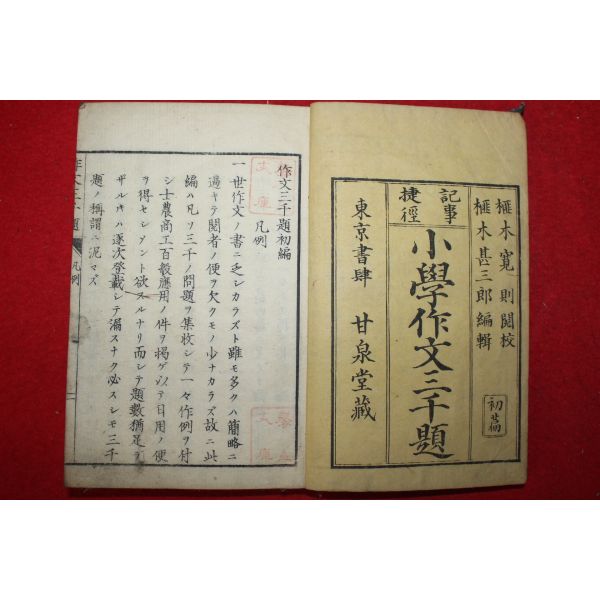 榧木寛則閲校
榧木甚三郎編輯
初篇
記事
捷徑
小學作文三千題
東京書肆 甘泉堂藏
作文三千題初編
凡例
一世作文ノ書ニ乏シカラズト雖モ多クハ簡略ニ
過キテ閲者ノ便ヲ欠クモノ少ナカラズ故ニ此
編ハ凡ソ三千ノ問題ヲ集收シテ一々作例ヲ付
シ士農商工百般應用ノ件ヲ掲ゲ以テ日用ノ便
ヲ得セシメント欲スルナリ而シテ題數猶足ラ
ザルモノハ逐次登載シテ漏スナク必スシモ三千
題ノ稱謂ニ泥マズ
作文三千題 凡例
文庫
文庫